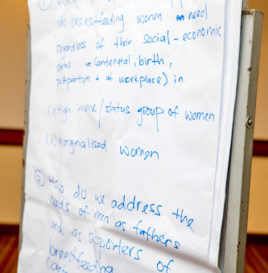 do breastfeeding women need
regardless of their social - economic
(antenatal, birth,
postpartum & at workplace) in
(i) High home/status group of women
(ii) marginalised women
② How do we address the
needs of men as fathers
and as supporters of
breastfeeding